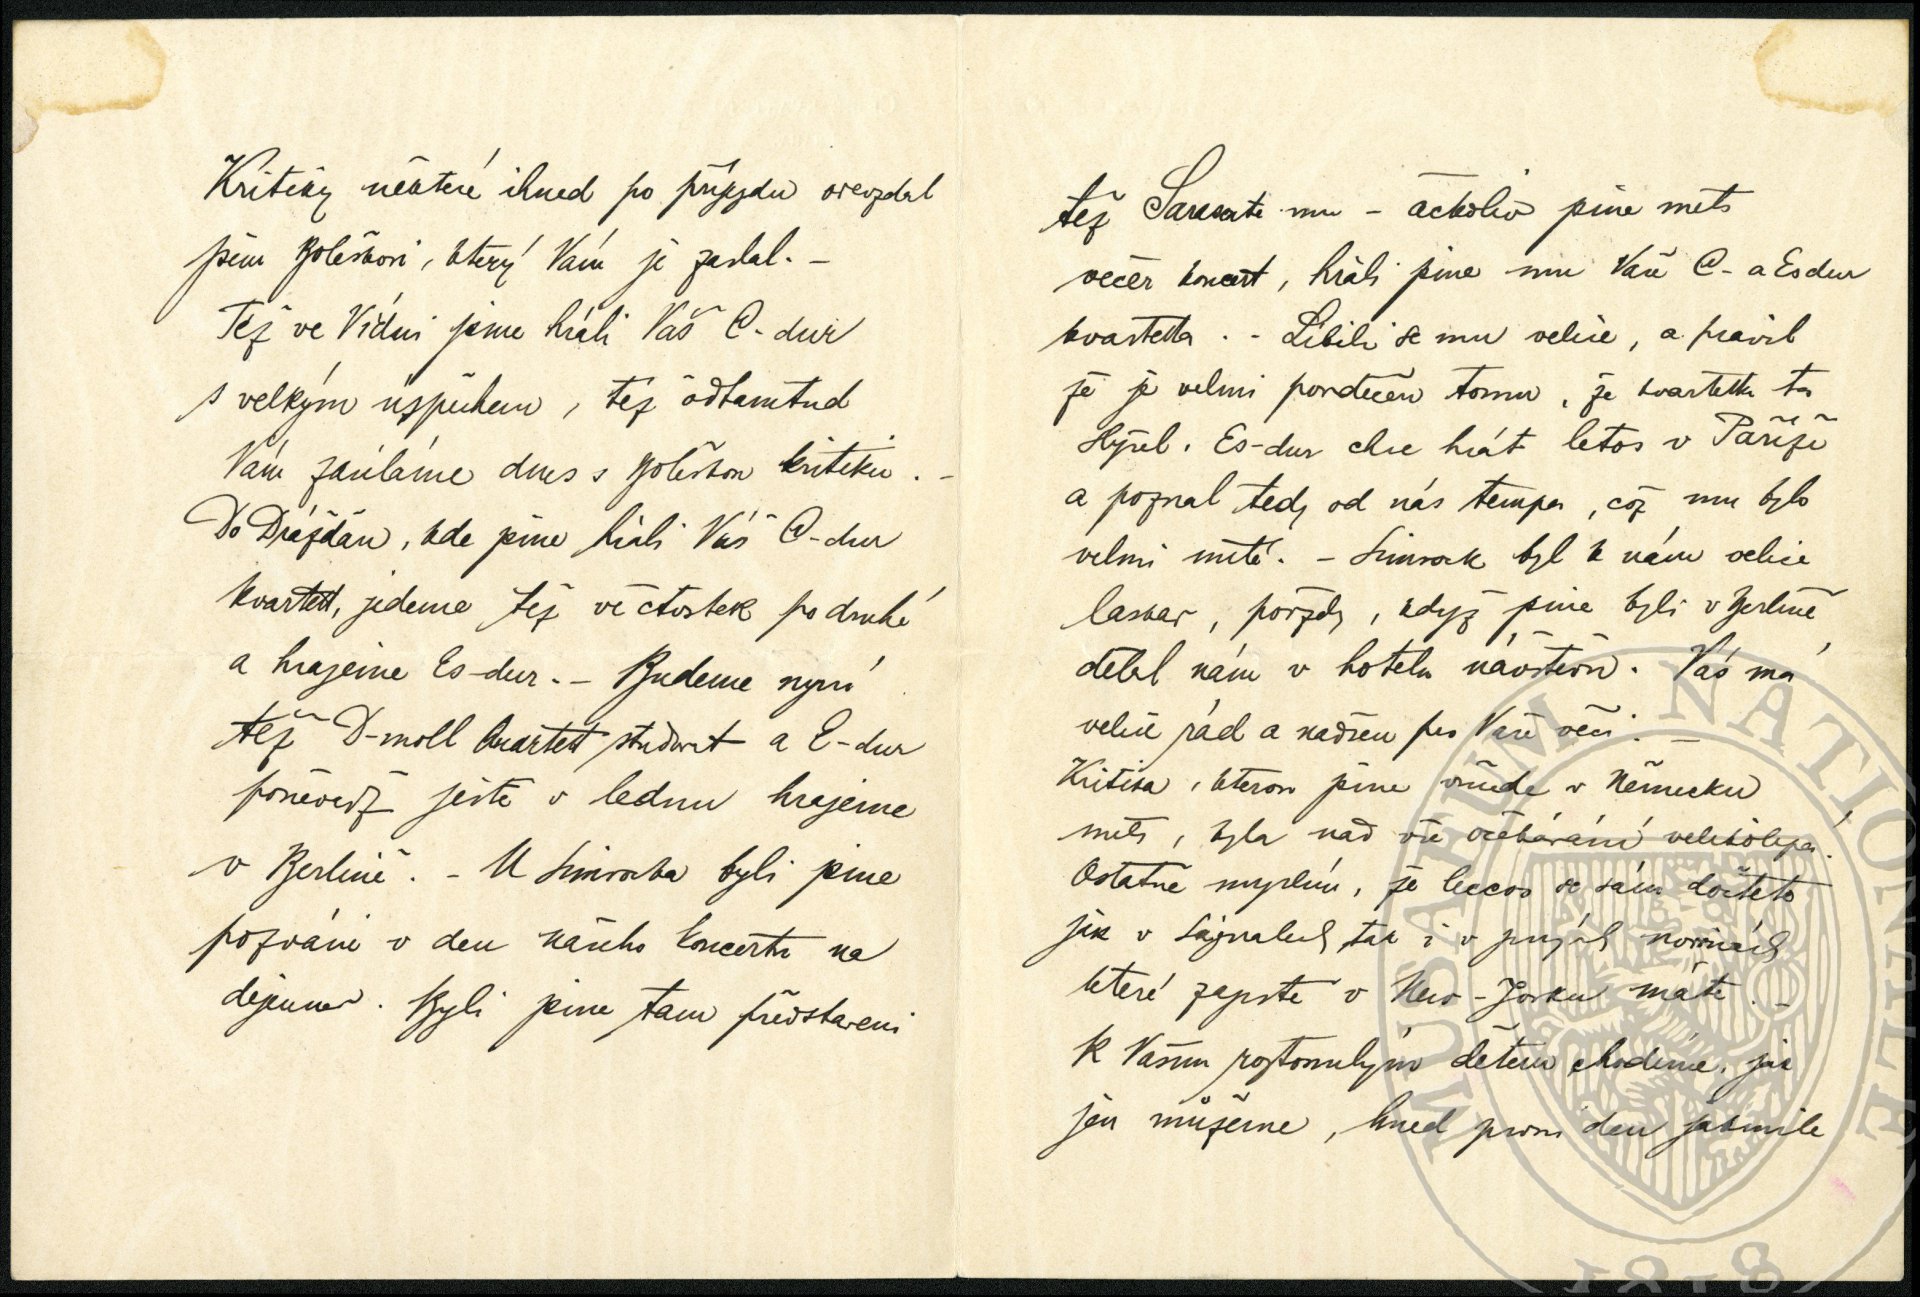 Kritiky některé ihned po příjezdu odevzdal
jsem Boleškovi, který Vám je zaslal. –
Též ve Vídni jsme hráli Váš C-dur
s velkým úspěchem, též odtamtud
Vám zasíláme dnes s Boleškou kritiku. –
Do Drážďan, kde jsme hráli Váš C-dur
kvartett, jedeme též ve čtvrtek po druhé
a hrajeme Es-dur. – Budeme nyní
též D-moll Quartett studovat a E-dur
poněvadž ještě v lednu hrajeme
v Berlině. – U Simrocka byli jsme
pozváni v den našeho koncertu na
dejeuner. Byli jsme tam představeni
též Sarasate-mu – ačkoliv jsme měli
večer koncert, hráli jsme mu Vaše C- a Es dur
kvartetta. – Líbili se mu velice, a pravil
že je velmi povděčen tomu, že kvartetta ta
slyšel. Es-dur chce hrát letos v Paříži
a poznal tedy od nás tempa, což mu bylo
velmi milé. – Simrock byl k nám velice
laskav, pořády, když jsme byli v Berlině
dělal nám v hotelu návštěvu. Vás má
velice rád a nadšen pro Vaše věci. –
Kritika, kterou jsme všude v Německu
měli, byla nad vše očekávání velikolepá.
Ostatně myslím, že leccos se sám dočtete
jak v Signalech, tak i v jiných novinách
které zajisté v New-Yorku máte. –
K Vašim roztomilým dětem chodíme, jak
jen můžeme, hned první den jakmile
MUSAEUM NATIONALE
1818